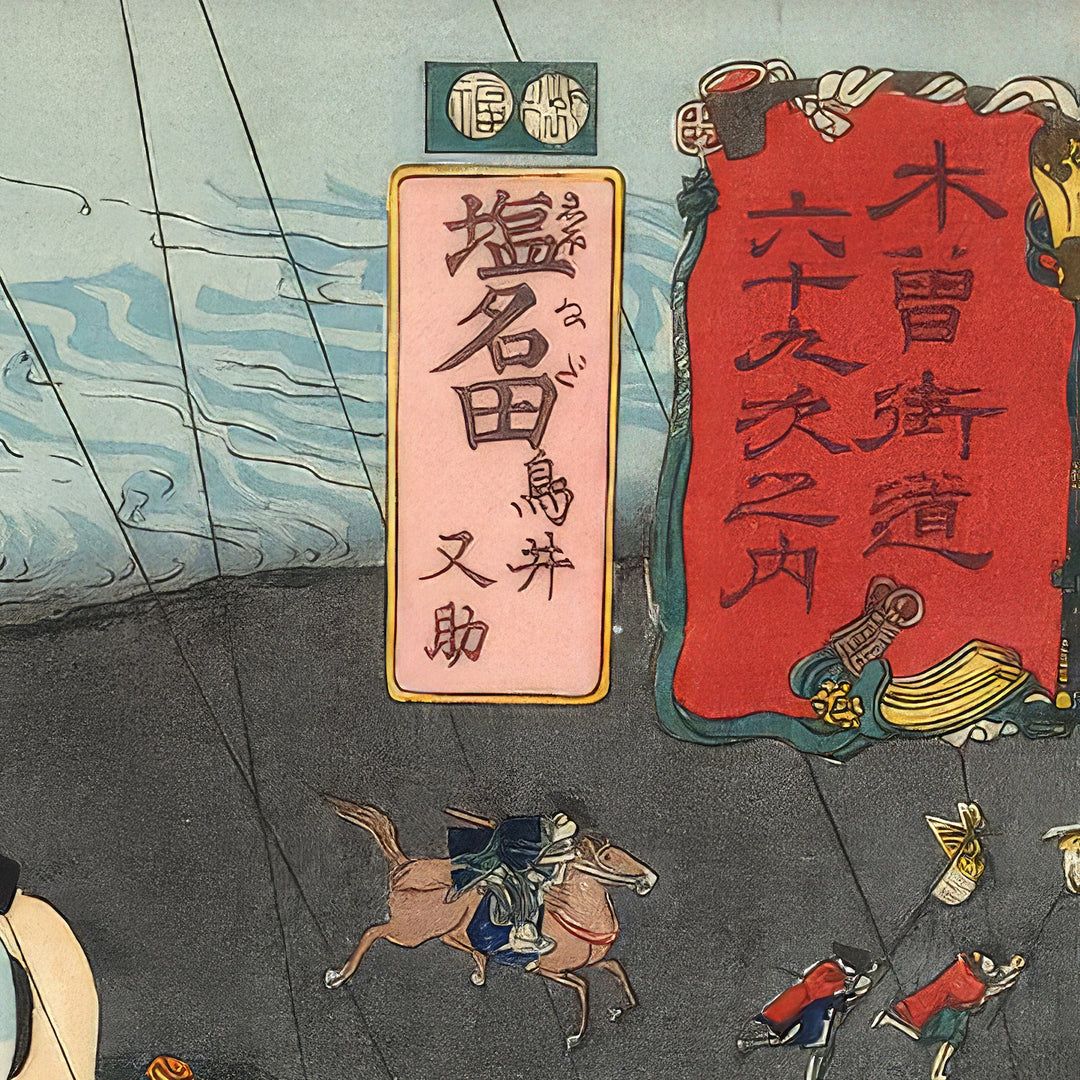 木曾街道
六十九次之内
福
塩名田
なだ
鳥井
又助